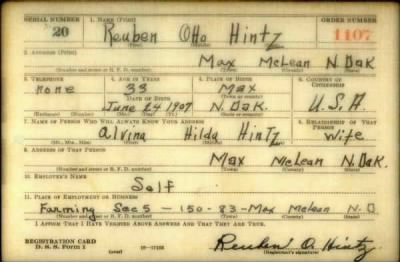 SERIAL NUMBER 1. NAME (Print) ORDER NUMBER
20 Reuben Otto Hintz 1107
(First) (Middle) (Last)
2. ADDRESS (Print)
Max McLean N. Dak
(Number and street or R. F. D. number) (Town) (County) (State)
3. TELEPHONE 4. AGE IN YEARS 5. PLACE OF BIRTH 6. COUNTRY OF CITIZENSHIP
none 33 Max
DATE OF BIRTH (Town or county)
June 24 1907 N. Dak. U.S.A.
(Exchange) (Number) (Mo.) (Day) (Yr.) (State or country)
7. NAME OF PERSON WHO WILL ALWAYS KNOW YOUR ADDRESS 8. RELATIONSHIP OF THAT PERSON
Alvina Hilda Hintz Wife
(Mr., Mrs., Miss) (First) (Middle) (Last)
9. ADDRESS OF THAT PERSON
Max McLean N. Dak.
(Number and street or R. F. D. number) (Town) (County) (State)
10. EMPLOYER'S NAME
Self
11. PLACE OF EMPLOYMENT OR BUSINESS
Farming Sec 5 - 150 - 83 - Max McLean N. D
(Number and street or R. F. D. number) (Town) (County) (State)
I AFFIRM THAT I HAVE VERIFIED ABOVE ANSWERS AND THAT THEY ARE TRUE.
REGISTRATION CARD
D. S. S. Form 1 (over) Reuben O. Hintz
(Registrant's signature)